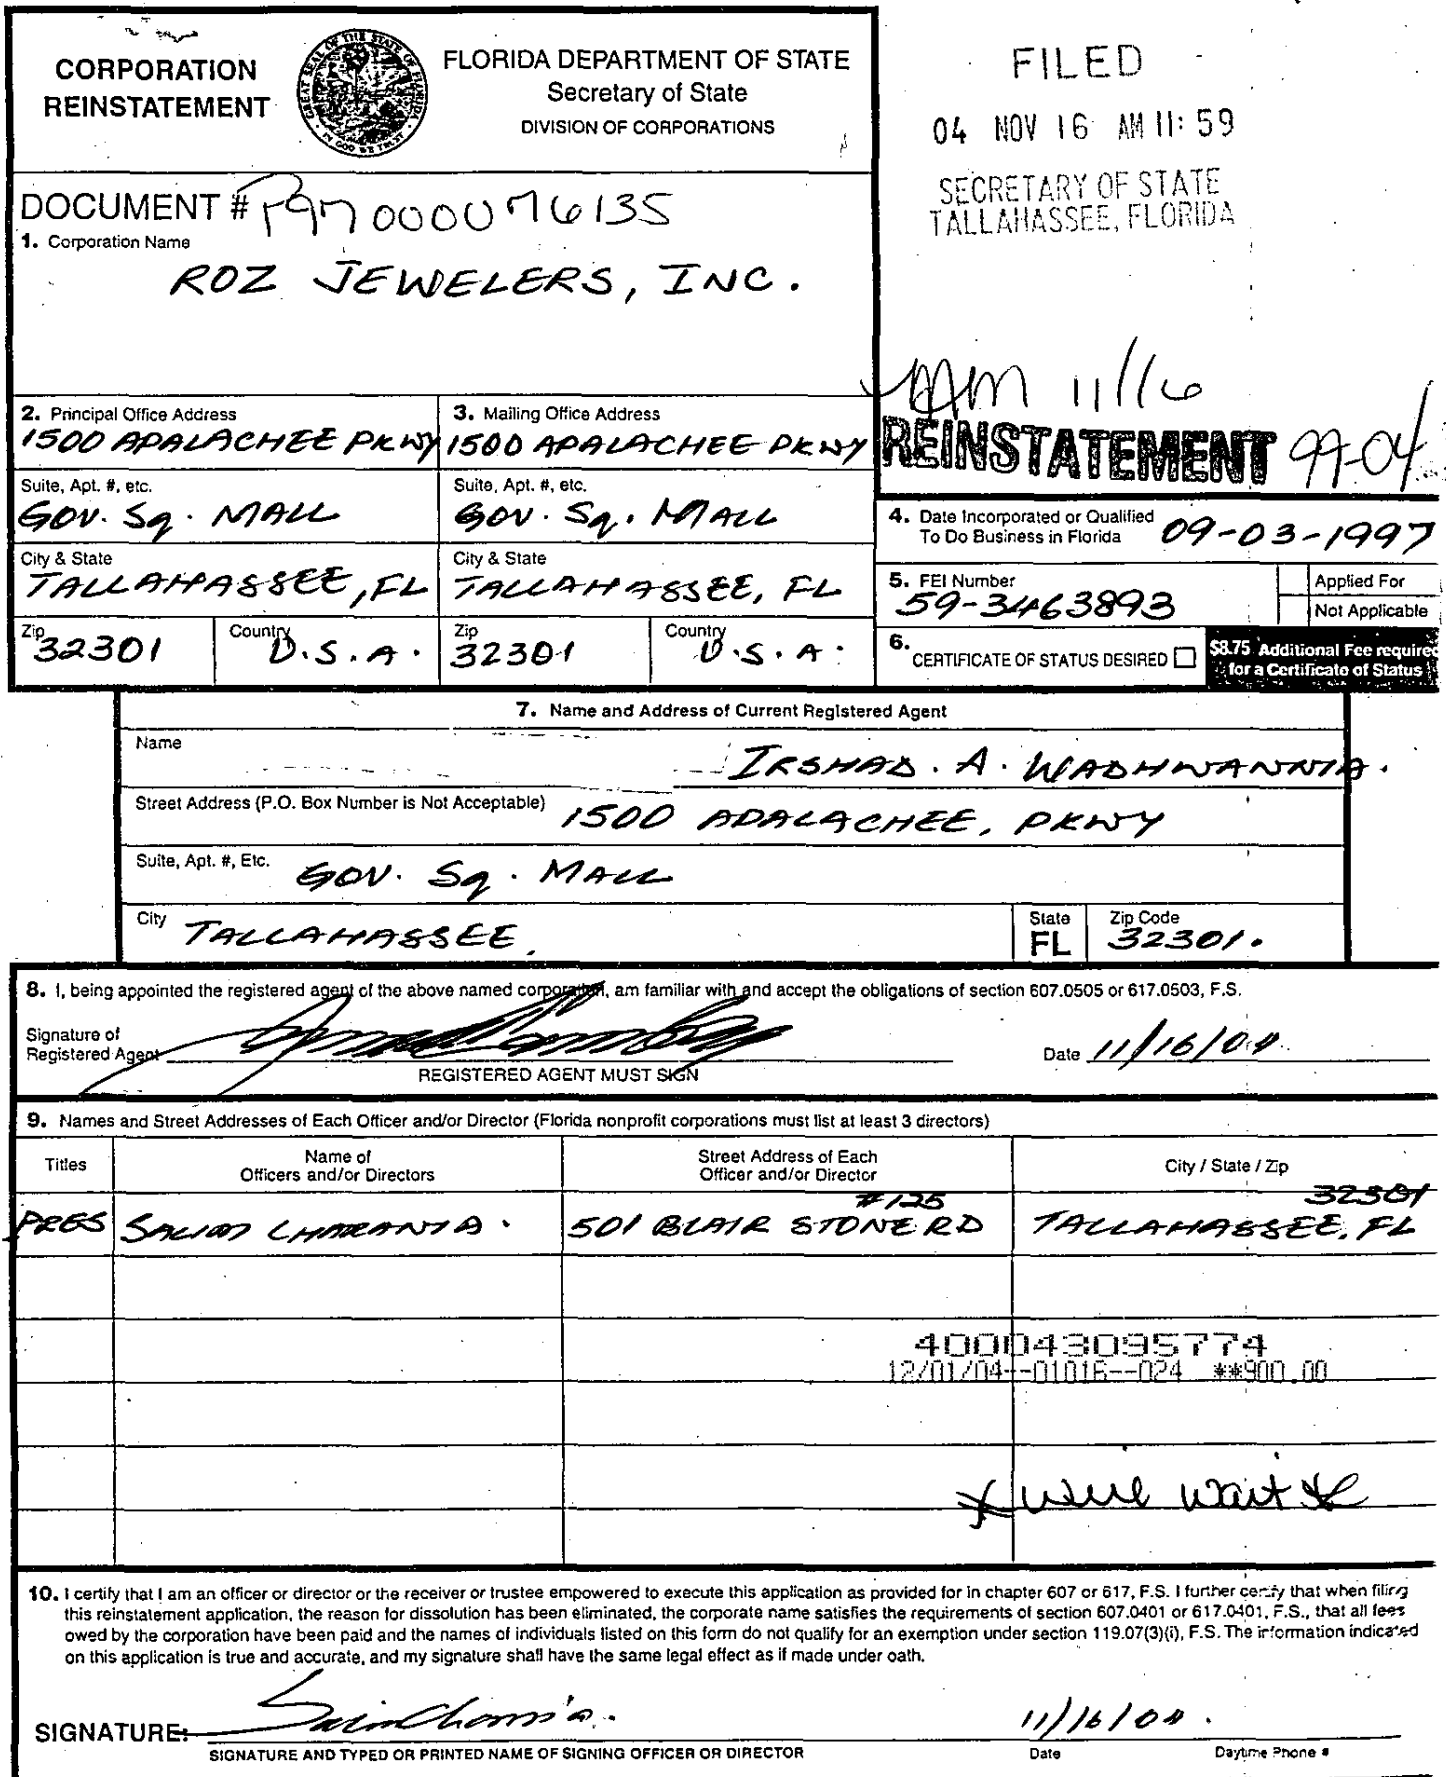 CORPORATION
REINSTATEMENT
GREAT SEAL OF THE STATE OF FLORIDA
IN GOD WE TRUST
FLORIDA DEPARTMENT OF STATE
Secretary of State
DIVISION OF CORPORATIONS
FILED
04 NOV 16 AM 11:59
SECRETARY OF STATE
TALLAHASSEE, FLORIDA
DOCUMENT # P97000076135
1. Corporation Name
ROZ JEWELERS, INC.
11/16
REINSTATEMENT 99-04
2. Principal Office Address
1500 APALACHEE PKWY
3. Mailing Office Address
1500 APALACHEE PKWY
Suite, Apt. #, etc.
GOV. Sq. MALL
Suite, Apt. #, etc.
GOV. Sq. MALL
City & State
TALLAHASSEE, FL
City & State
TALLAHASSEE, FL
Zip
32301
Country
U.S.A.
Zip
32301
Country
U.S.A.
4. Date Incorporated or Qualified
To Do Business in Florida 09-03-1997
5. FEI Number
59-3463893
Applied For
Not Applicable
6. CERTIFICATE OF STATUS DESIRED
$8.75 Additional Fee required
for a Certificate of Status
7. Name and Address of Current Registered Agent
Name
IRSHAD. A. WADHWANNIA.
Street Address (P.O. Box Number is Not Acceptable) 1500 APALACHEE, PKWY
Suite, Apt. #, Etc. GOV. Sq. MALL
City TALLAHASSEE,
State
FL
Zip Code
32301.
8. I, being appointed the registered agent of the above named corporation, am familiar with and accept the obligations of section 607.0505 or 617.0503, F.S.
Signature of
Registered Agent
Date 11/16/04
REGISTERED AGENT MUST SIGN
9. Names and Street Addresses of Each Officer and/or Director (Florida nonprofit corporations must list at least 3 directors)
Titles
Name of
Officers and/or Directors
Street Address of Each
Officer and/or Director
City / State / Zip
PRES
SALIM CHARANIA.
#125
501 BLAIR STONE RD
32301
TALLAHASSEE, FL
400043095774
12/01/04--01016--024 **900.00
* will wait *
10. I certify that I am an officer or director or the receiver or trustee empowered to execute this application as provided for in chapter 607 or 617, F.S. I further certify that when filing
this reinstatement application, the reason for dissolution has been eliminated, the corporate name satisfies the requirements of section 607.0401 or 617.0401, F.S., that all fees
owed by the corporation have been paid and the names of individuals listed on this form do not qualify for an exemption under section 119.07(3)(i), F.S. The information indicated
on this application is true and accurate, and my signature shall have the same legal effect as if made under oath.
SIGNATURE:
11/16/04.
SIGNATURE AND TYPED OR PRINTED NAME OF SIGNING OFFICER OR DIRECTOR
Date
Daytime Phone #